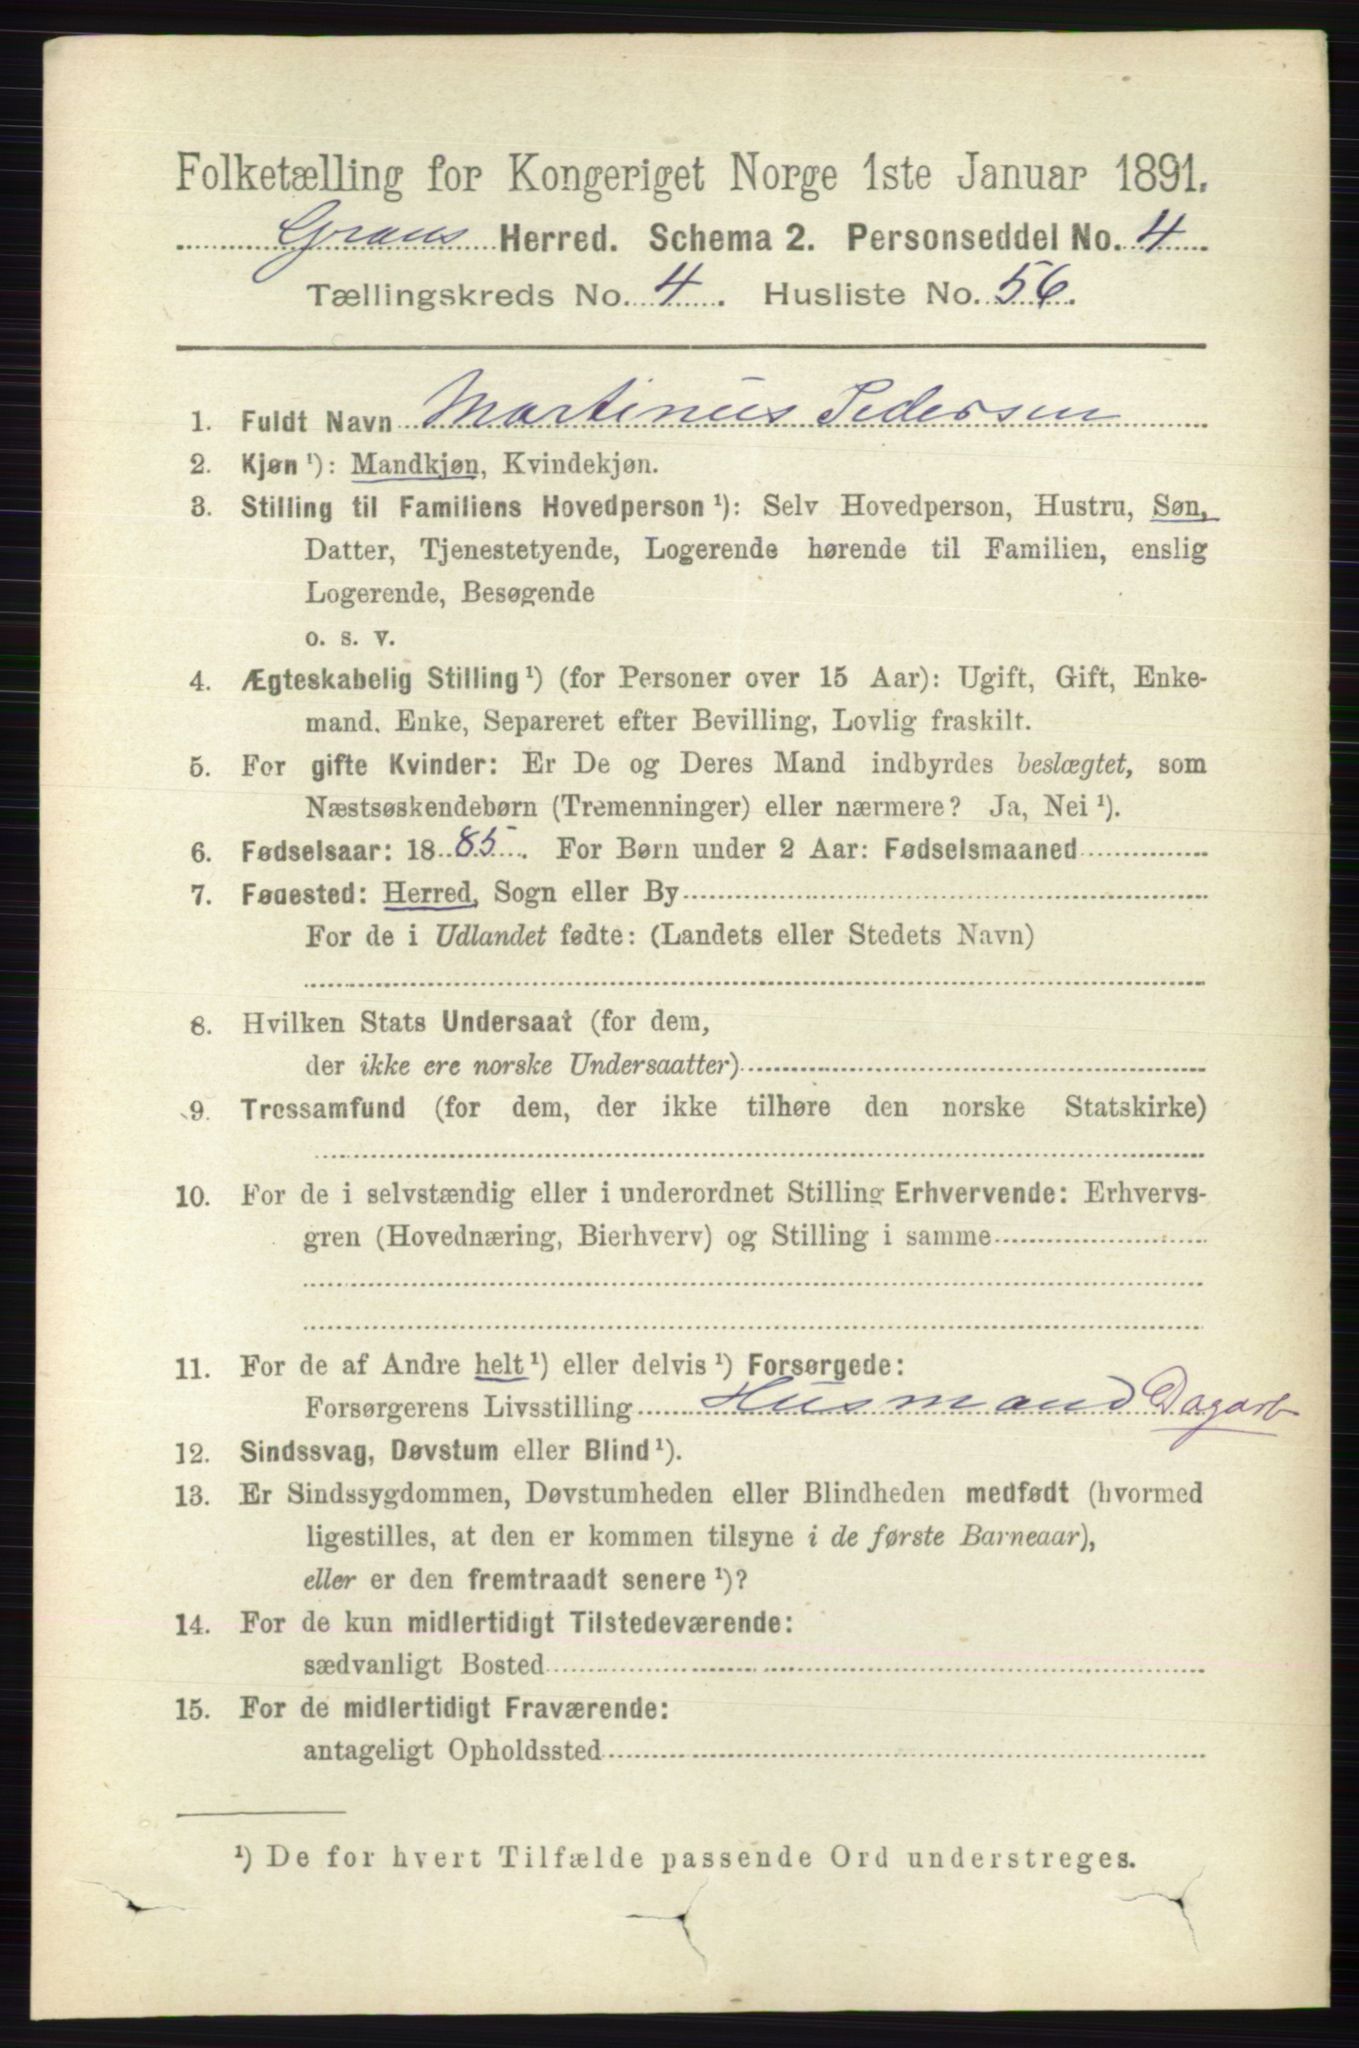 Folketælling for Kongeriget Norge 1ste Januar 1891.
Grans Herred. Schema 2. Personseddel No. 4
Tællingskreds No. 4. Husliste No. 56.
1. Fuldt Navn Martinus Pedersen
2. Kjøn ¹): Mandkjøn, Kvindekjøn.
3. Stilling til Familiens Hovedperson ¹): Selv Hovedperson, Hustru, Søn,
Datter, Tjenestetyende, Logerende hørende til Familien, enslig
Logerende, Besøgende
o. s. v.
4. Ægteskabelig Stilling ¹) (for Personer over 15 Aar): Ugift, Gift, Enke-
mand, Enke, Separeret efter Bevilling, Lovlig fraskilt.
5. For gifte Kvinder: Er De og Deres Mand indbyrdes beslægtet, som
Næstsøskendebørn (Tremenninger) eller nærmere? Ja, Nei ¹).
6. Fødselsaar: 1885. For Børn under 2 Aar: Fødselsmaaned
7. Fødested: Herred, Sogn eller By
For de i Udlandet fødte: (Landets eller Stedets Navn)
8. Hvilken Stats Undersaat (for dem,
der ikke ere norske Undersaatter)
9. Trossamfund (for dem, der ikke tilhøre den norske Statskirke)
10. For de i selvstændig eller i underordnet Stilling Erhvervende: Erhvervs-
gren (Hovednæring, Bierhverv) og Stilling i samme
11. For de af Andre helt ¹) eller delvis ¹) Forsørgede:
Forsørgerens Livsstilling Husmand Dagarb
12. Sindssvag, Døvstum eller Blind ¹).
13. Er Sindssygdommen, Døvstumheden eller Blindheden medfødt (hvormed
ligestilles, at den er kommen tilsyne i de første Barneaar),
eller er den fremtraadt senere ¹)?
14. For de kun midlertidigt Tilstedeværende:
sædvanligt Bosted
15. For de midlertidigt Fraværende:
antageligt Opholdssted
¹) De for hvert Tilfælde passende Ord understreges.